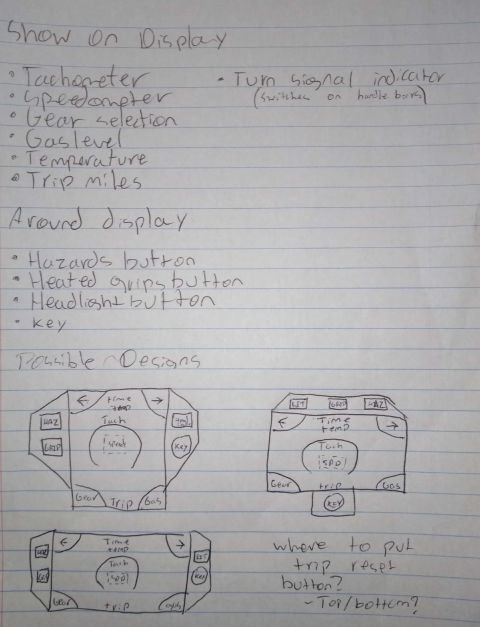 Show On Display
• Tachometer
• Speedometer
• Gear selection
• Gas level
• Temperature
• Trip miles
• Turn signal indicator
(switches on handle bars)
Around display
• Hazards button
• Heated grips button
• Headlight button
• key
Possible Designs
← time →
temp
HAZ Tach
GRIP Speed KEY
Gear Trip Gas
LIT GRIP HAZ
← Time →
temp
Tach
SPD
Gear trip Gas
KEY
← Time →
temp
Tach LIT
SPD Key
Gear trip
where to put
trip reset
button?
- Top/bottom?